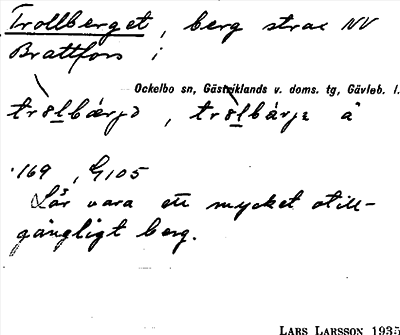 Trollberget, berg strax NV
Brattfors i
Ockelbo sn, Gästriklands v. doms. tg, Gävleb. l.
å
169, G105
Lär vara ett mycket otill-
gängligt berg.
LARS LARSSON 1935